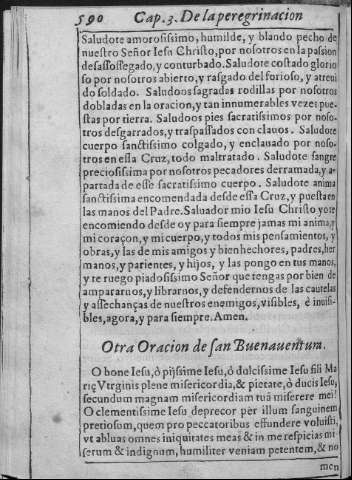 590 Cap. 3. De la peregrinacion
Saludote amorosissimo, humilde, y blando pecho de
nuestro Señor Iesu Christo, por nosotros en la passion
desassossegado, y conturbado. Saludote costado glorio
so por nosotros abierto, y rasgado del furioso, y atreui
do soldado. Saludoos sagradas rodillas por nosotros
dobladas en la oracion, y tan innumerables vezes pues-
tas por tierra. Saludoos pies sacratissimos por noso-
tros desgarrados, y traspassados con clauos. Saludote
cuerpo sanctissimo colgado, y enclauado por noso-
tros en essa Cruz, todo mal tratado. Saludote sangre
preciosissima por nosotros pecadores derramada, y a-
partada de esse sacratissimo cuerpo. Saludote anima
sanctissima encomendada desde essa Cruz, y puesta en
las manos del Padre. Saluador mio Iesu Christo yo te
encomiendo desde oy para siempre jamas mi anima, y
mi coraçon, y mi cuerpo, y todos mis pensamientos, y
obras, y las de mis amigos y bienhechores, padres, her
manos, y parientes, y hijos, y las pongo en tus manos,
y te ruego piadosissimo Señor que tengas por bien de
ampararnos, y librarnos, y defendernos de las cautelas
y assechanças de nuestros enemigos, visibles, è inuisi-
bles, agora, y para siempre. Amen.
Otra Oracion de san Buenauentura.
O bone Iesu, ò pijssime Iesu, ò dulcissime Iesu fili Ma
riæ Virginis plene misericordia, & pietate, ò ducis Iesu,
secundum magnam misericordiam tuã miserere mei!
O clementissime Iesu deprecor per illum sanguinem
pretiosum, quem pro peccatoribus effundere voluisti,
vt abluas omnes iniquitates meas & in me respicias mi
serum & indignum, humiliter veniam petentem, & no
men